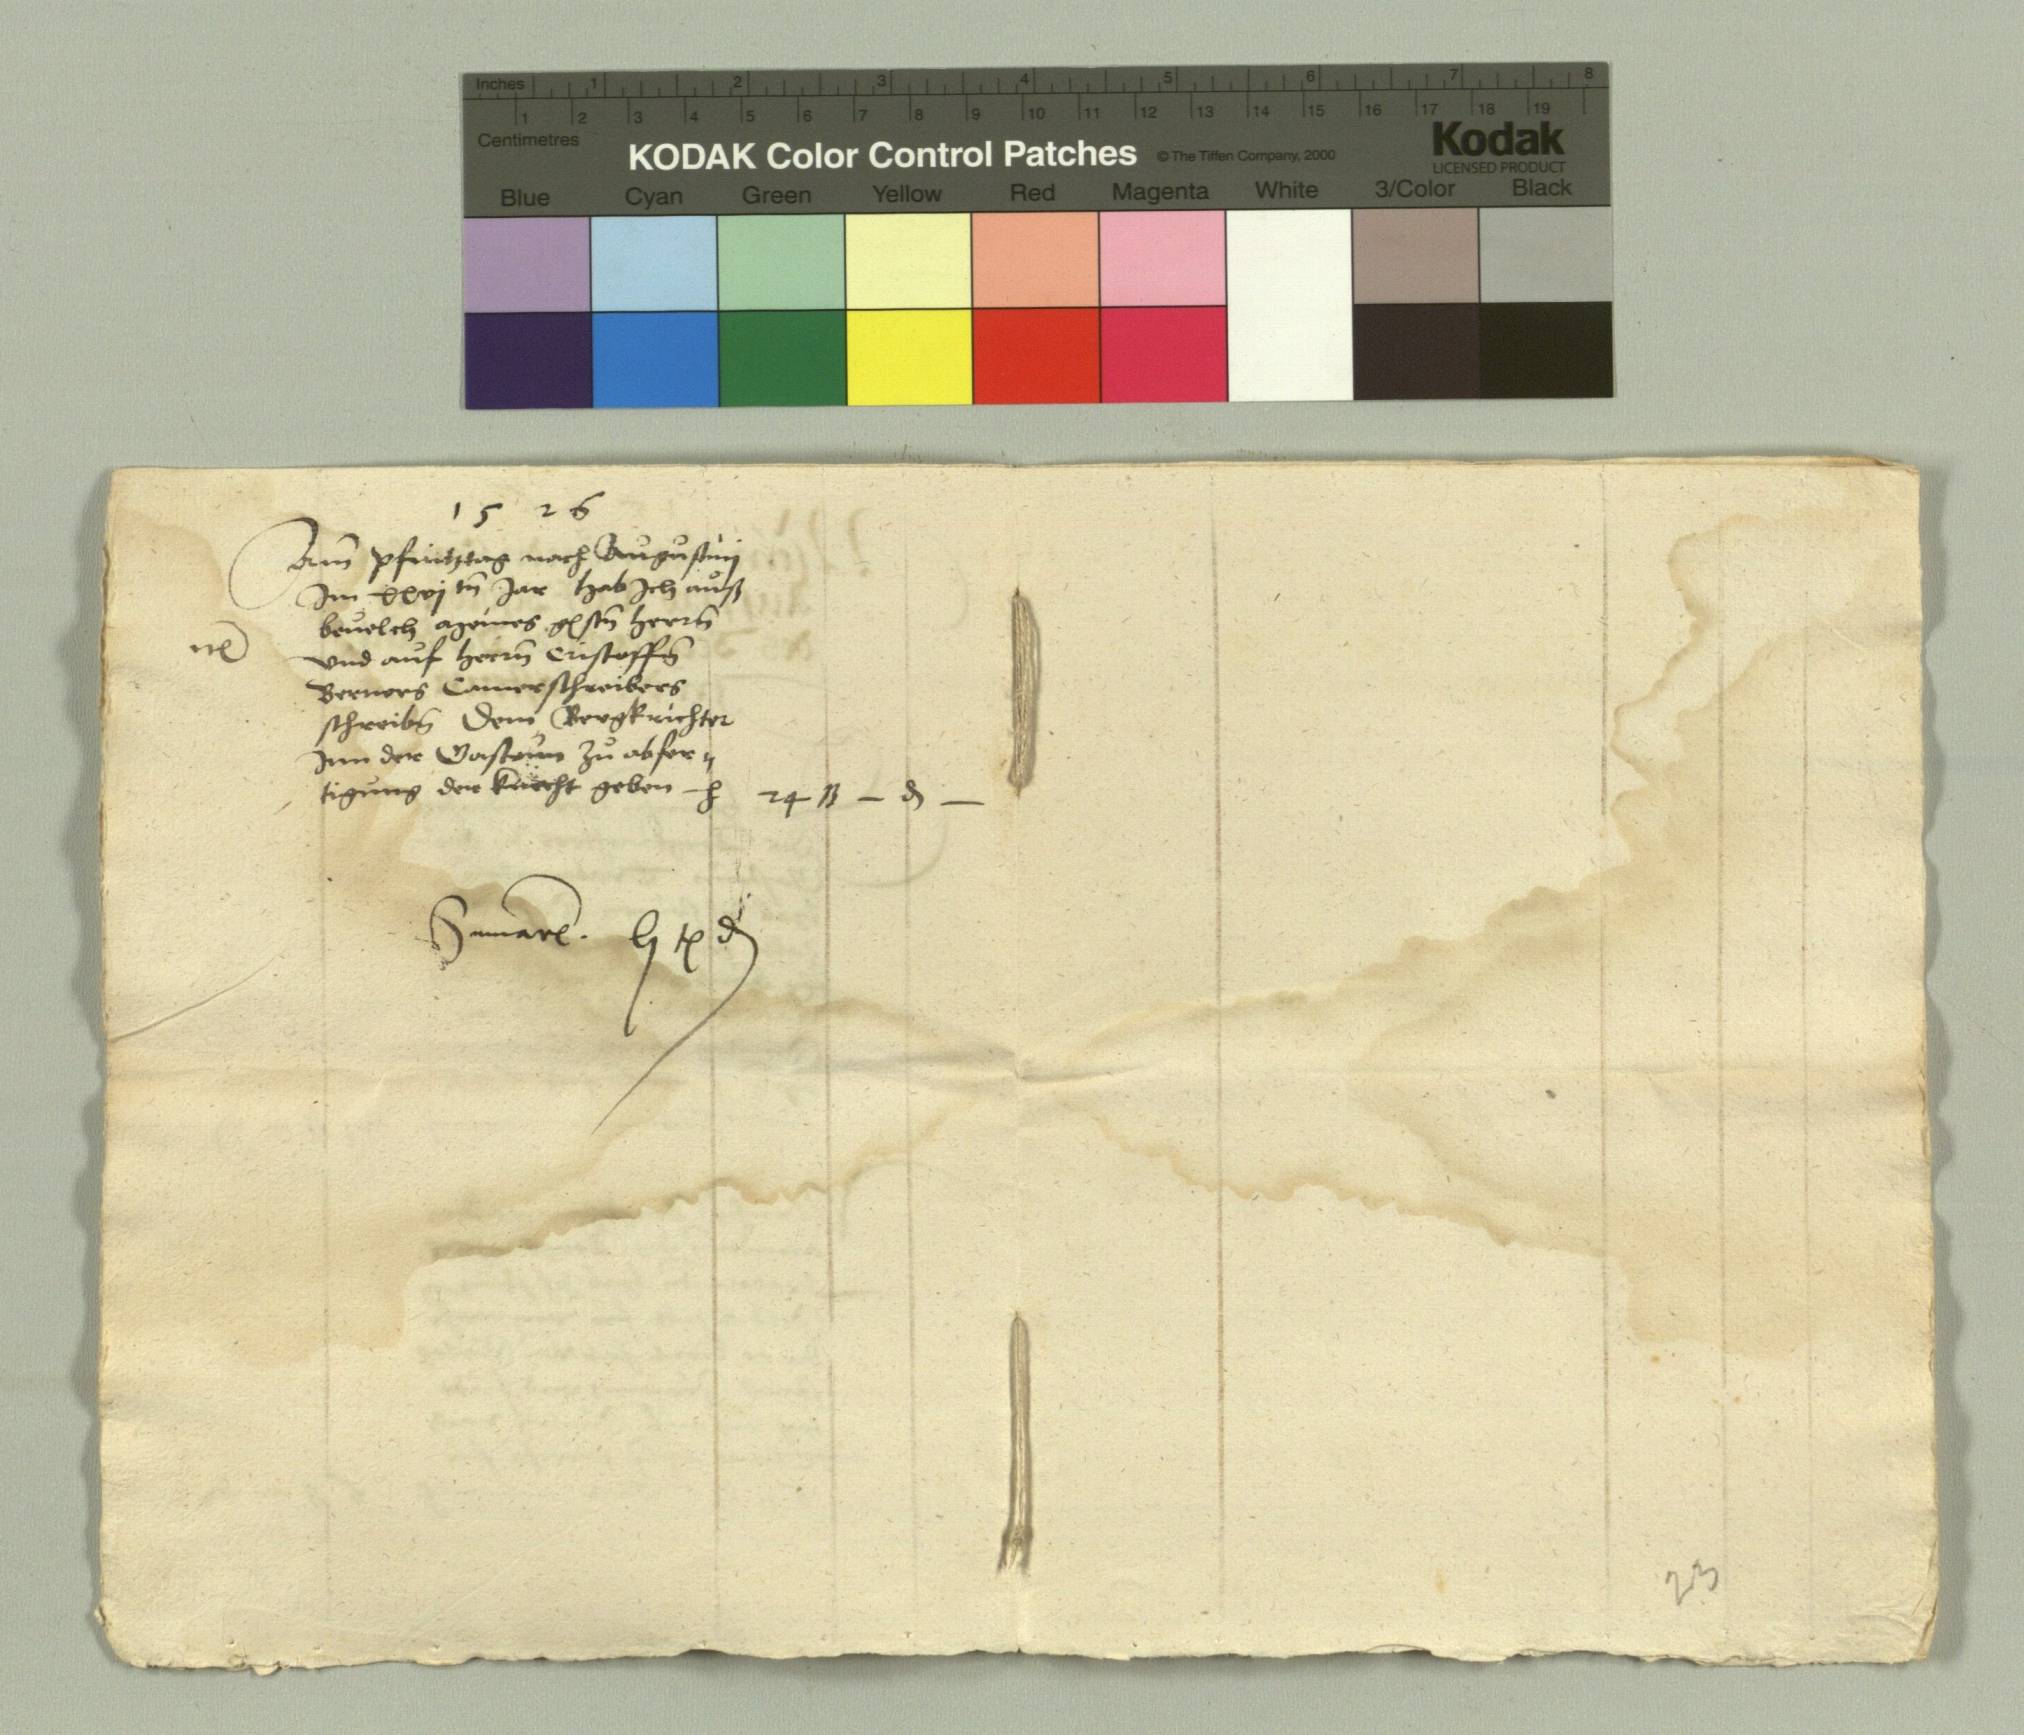 Inches 1 2 3 4 5 6 7 8
1 2 3 4 5 6 7 8 9 10 11 12 13 14 15 16 17 18 19
Centimetres
KODAK Color Control Patches © The Tiffen Company, 2000 Kodak
LICENSED PRODUCT
Blue Cyan Green Yellow Red Magenta White 3/Color Black
1526
Am pfintztag nach Augustinj
Im xxvj tn Jar hab Ich auß
beuelch meines gsten herrn
vnd auf herrn Cristoffn
Berners Camerschreibers
schreibn Dem Bergkrichter
Inn der Gastein zu abfer
tigung der knecht geben 24 ß — d —
Summarum
23